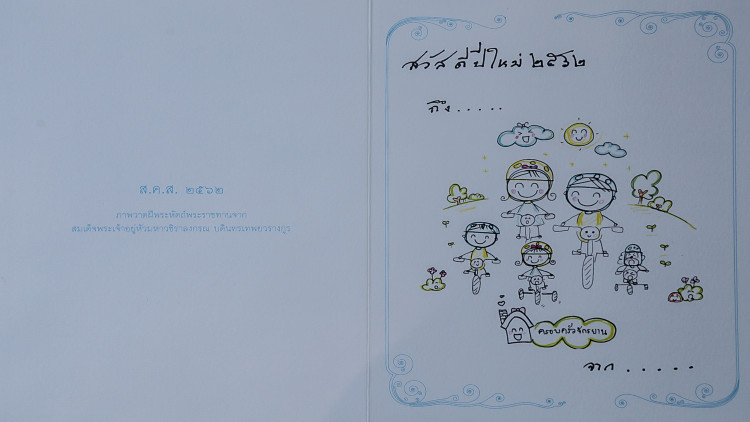 ส.ค.ส. ๒๕๖๒
ภาพวาดฝีพระหัตถ์พระราชทานจาก
สมเด็จพระเจ้าอยู่หัวมหาวชิราลงกรณ บดินทรเทพยวรางกูร
สวัสดีปีใหม่ ๒๕๖๒
ถึง.....
ครอบครัวจักรยาน
จาก.....